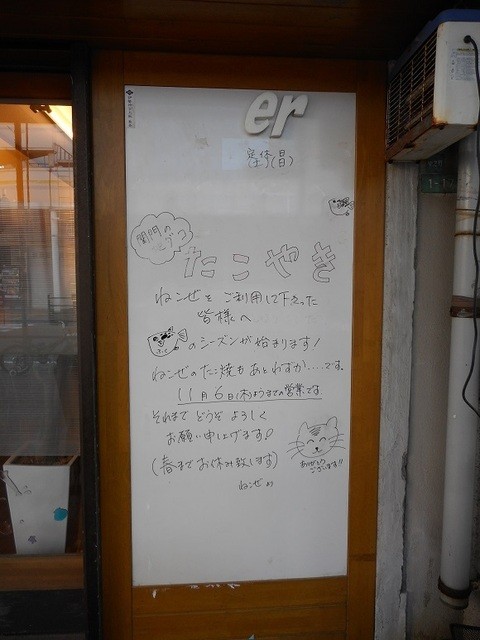 er
定休(日)
関門の
たこやき
ねンぜを ご利用して下さった
皆様へ
のシーズンが始まります!
ねンぜのたこ焼もあとわずか……です。
11月6日(木)までの営業です
それまで どうぞ よろしく
お願い申し上げます!
(春までお休み致します)
ありがとう
ございます!!
ねンぜ